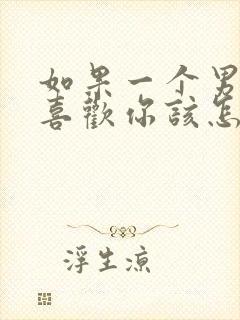 如果一个男
喜歡你該怎
浮生涼